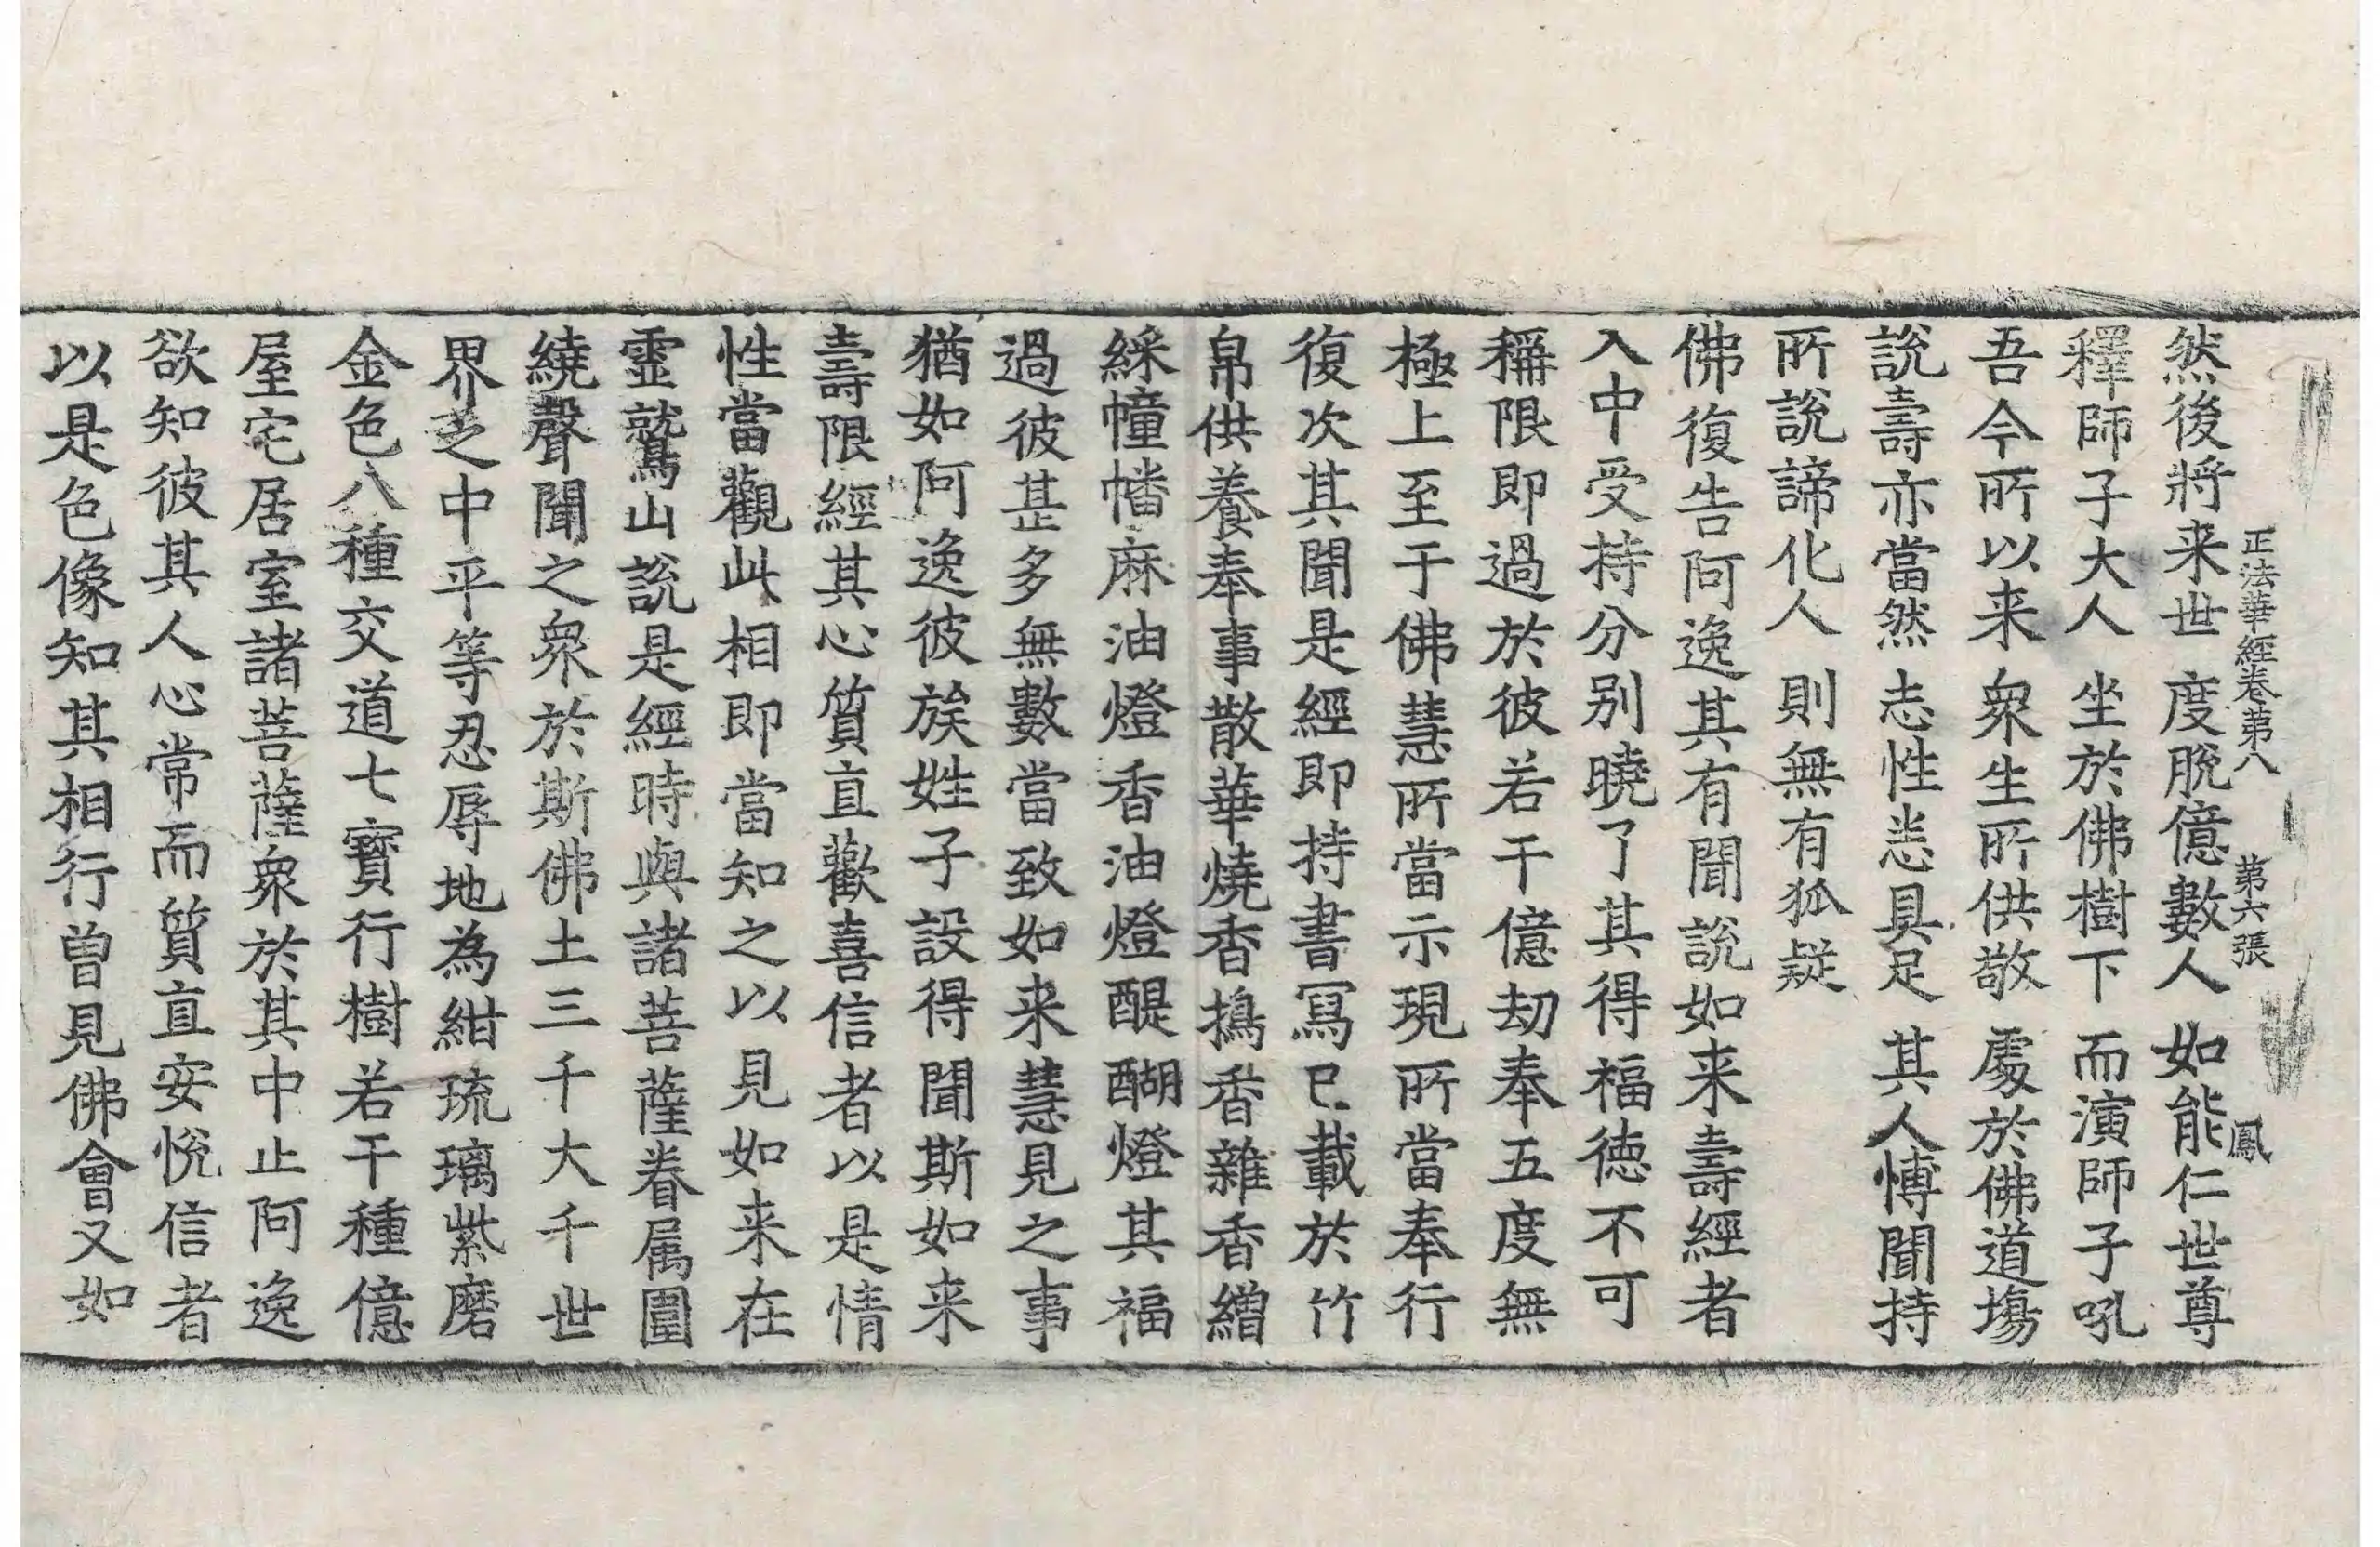 正法華經卷第八 第六張 鳳
然後将来世 度脫億數人 如能仁世尊
釋師子大人 坐於佛樹下 而演師子吼
吾今所以来 衆生所供敬 處於佛道塲
說壽亦當然 志性恙具足 其人愽聞持
所說諦化人 則無有狐疑
佛復告阿逸其有聞說如来壽經者
入中受持分别曉了其得福徳不可
稱限即過於彼若干億劫奉五度無
極上至于佛慧所當示現所當奉行
復次其聞是經即持書冩已載於竹
帛供養奉事散華燒香擣香雜香繒
綵幢幡麻油燈香油燈醍醐燈其福
過彼甚多無數當致如来慧見之事
猶如阿逸彼族姓子設得聞斯如来
壽限經其心質直歡喜信者以是情
性當觀此相即當知之以見如来在
靈鷲山說是經時與諸菩薩眷属圍
繞聲聞之衆於斯佛土三千大千世
界之中平等忍辱地為紺琉璃紫磨
金色八種交道七寳行樹若干種億
屋宅居室諸菩薩衆於其中止阿逸
欲知彼其人心常而質直安悅信者
以是色像知其相行曽見佛會又如